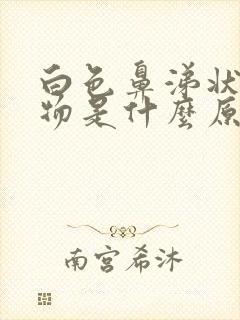 白色鼻涕状
物是什麼原
南宫希沐